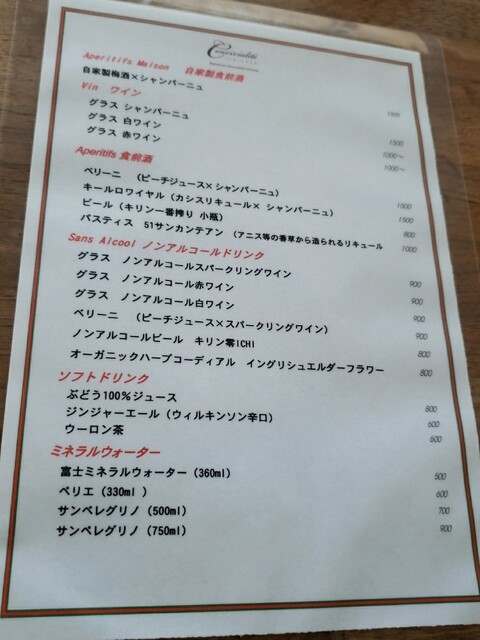 Convivialité
Aperitifs Maison 自家製食前酒
自家製梅酒×シャンパーニュ
Vin ワイン
グラス シャンパーニュ 1500
グラス 白ワイン 1000～
グラス 赤ワイン 1000～
Aperitifs 食前酒
ベリーニ （ピーチジュース× シャンパーニュ） 1500
キールロワイヤル（カシスリキュール× シャンパーニュ） 1500
ビール（キリン一番搾り 小瓶） 800
パスティス 51サンカンテアン （アニス等の香草から造られるリキュール 1000
Sans Alcool ノンアルコールドリンク
グラス ノンアルコールスパークリングワイン 900
グラス ノンアルコール赤ワイン 900
グラス ノンアルコール白ワイン 900
ベリーニ （ピーチジュース×スパークリングワイン） 900
ノンアルコールビール キリン零ICHI 800
オーガニックハーブコーディアル イングリシュエルダーフラワー 800
ソフトドリンク
ぶどう100％ジュース 800
ジンジャーエール（ウィルキンソン辛口） 600
ウーロン茶 600
ミネラルウォーター
富士ミネラルウォーター（360ml） 500
ペリエ（330ml ） 600
サンペレグリノ（500ml） 700
サンペレグリノ（750ml） 900